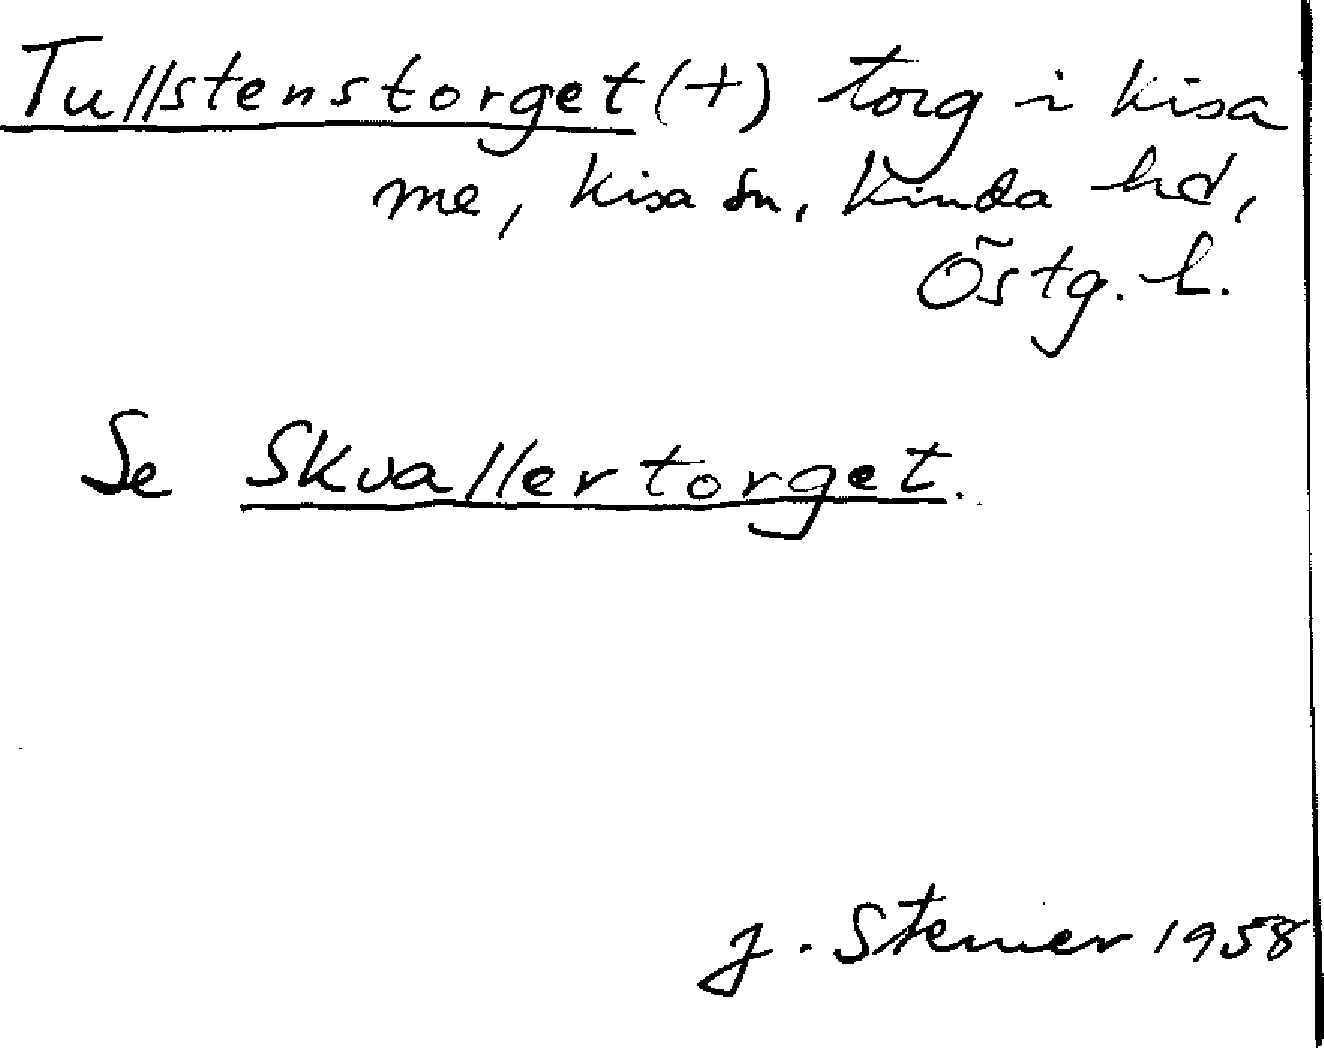 Tullstenstorget (+) torg i Kisa
me, Kisa sn, Kinda hd,
Östg. l.
Se Skvallertorget.
J. Stenier 1958